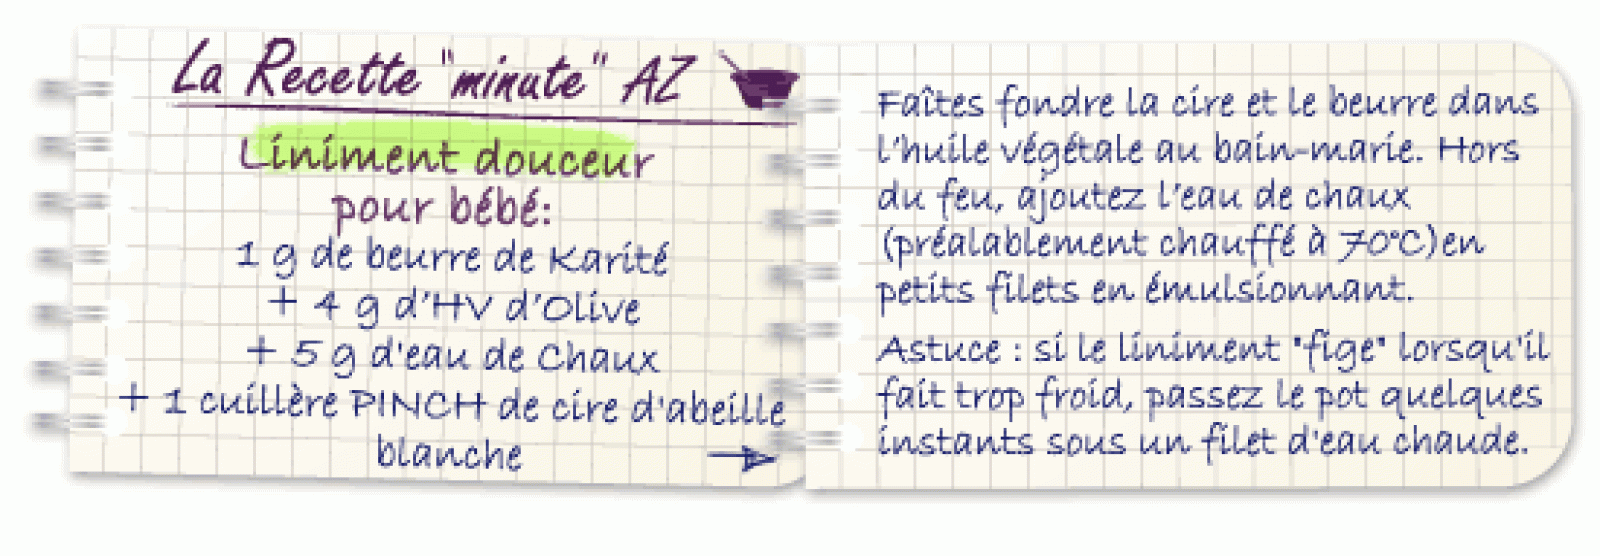 La Recette "minute" AZ
Liniment douceur
pour bébé:
1 g de beurre de Karité
+ 4 g d'HV d'Olive
+ 5 g d'eau de Chaux
+ 1 cuillère PINCH de cire d'abeille
blanche
Faîtes fondre la cire et le beurre dans
l'huile végétale au bain-marie. Hors
du feu, ajoutez l'eau de chaux
(préalablement chauffé à 70°C)en
petits filets en émulsionnant.
Astuce : si le liniment "fige" lorsqu'il
fait trop froid, passez le pot quelques
instants sous un filet d'eau chaude.